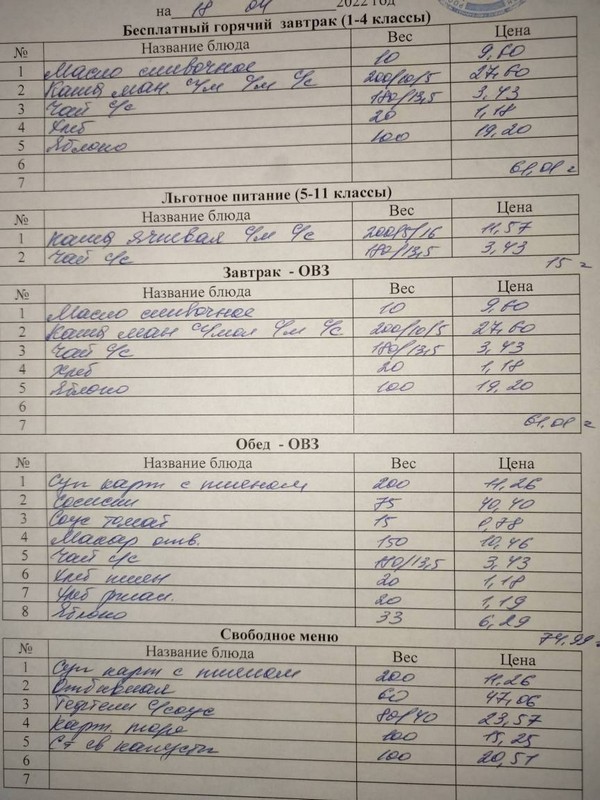 на 18 04 2022 год
Бесплатный горячий завтрак (1-4 классы)
№ Название блюда Вес Цена
1 Масло сливочное 10 9,60
2 Каша ман с/м с/м с/с 200/10/5 27,60
3 Чай с/с 180/13,5 3,43
4 Хлеб 20 1,18
5 Яблоко 100 19,20
6
7 61,01
Льготное питание (5-11 классы)
№ Название блюда Вес Цена
1 Каша ячневая с/м с/с 200/5/16 11,57
2 Чай с/с 180/13,5 3,43
15
Завтрак - ОВЗ
№ Название блюда Вес Цена
1 Масло сливочное 10 9,60
2 Каша ман с/мол с/м с/с 200/10/5 27,60
3 Чай с/с 180/13,5 3,43
4 Хлеб 20 1,18
5 Яблоко 100 19,20
6
7 61,01
Обед - ОВЗ
№ Название блюда Вес Цена
1 Суп карт с пшеном 200 11,26
2 Сосиски 75 40,40
3 Соус томат 15 0,78
4 Макар отв. 150 10,46
5 Чай с/с 180/13,5 3,43
6 Хлеб пшен 20 1,18
7 Хлеб ржан. 20 1,19
8 Яблоко 33 6,29
74,99
Свободное меню
№ Название блюда Вес Цена
1 Суп карт с пшеном 200 11,26
2 Отбивная 60 47,06
3 Тефтели с/соус 80/40 23,57
4 Карт. пюре 100 15,25
5 С-т св капусты 100 20,51
6
7